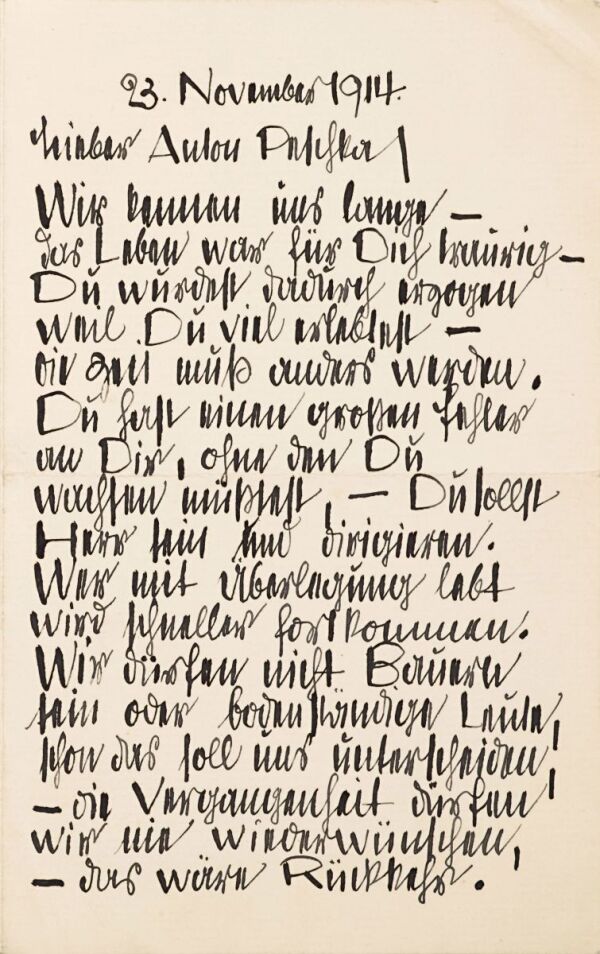 23. November 1914.
Lieber Anton Peschka!
Wir kennen uns lange —
das Leben war für Dich traurig —
Du wurdest dadurch erzogen
weil Du viel erlebtest —
die Zeit muß anders werden.
Du hast einen großen Fehler
an Dir, ohne den Du
wachsen müßtest, — Du sollst
Herr sein und dirigieren.
Wer mit Überlegung lebt
wird schneller fortkommen.
Wir dürfen nicht Bauern
sein oder bodenständige Leute,
schon das soll uns unterscheiden,
— die Vergangenheit dürfen
wir nie wiederwünschen,
— das wäre Rückkehr.